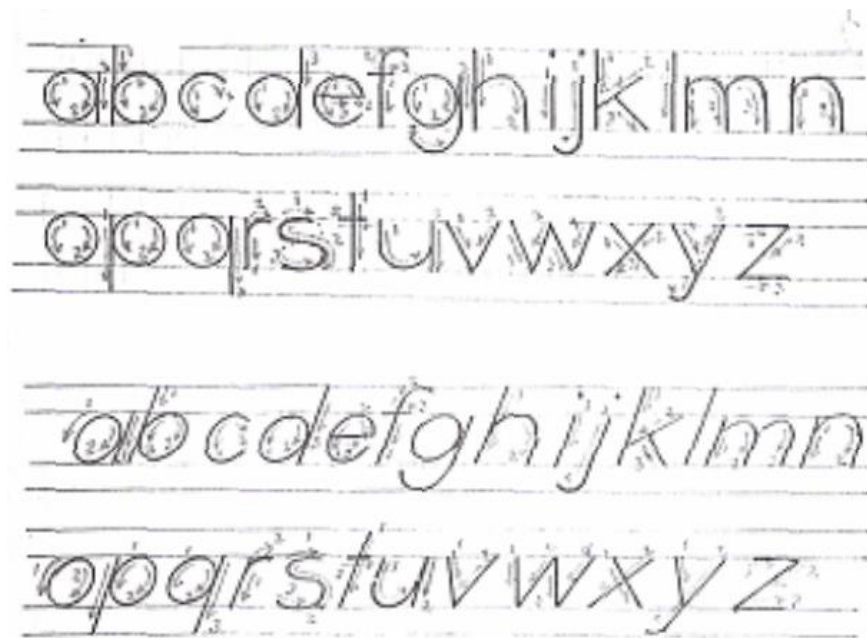 abcdefghijklmn
opqrstuvwxyz
abcdefghijklmn
opqrstuvwxyz